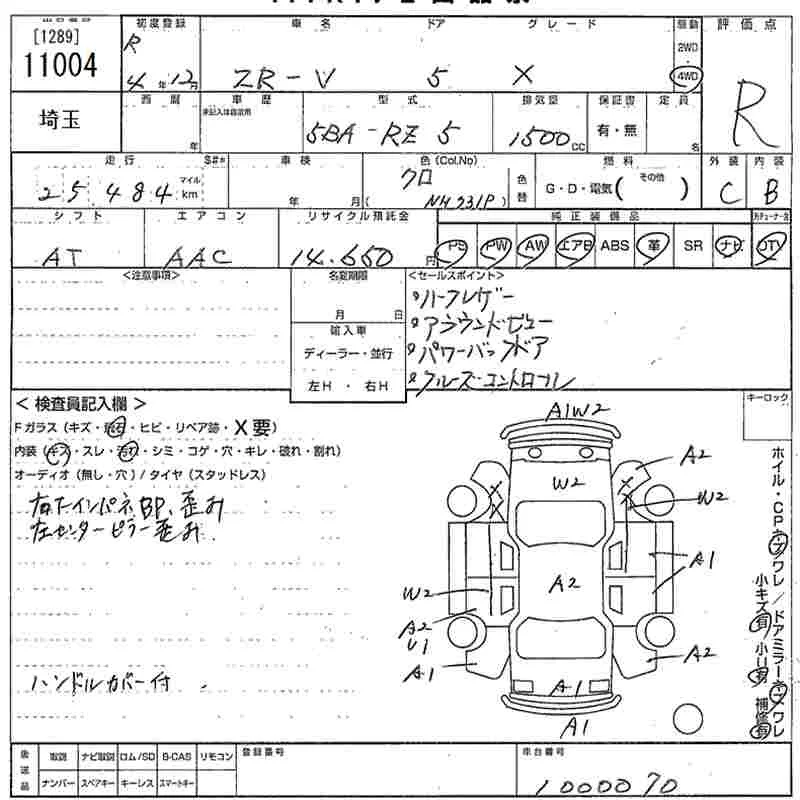 [1289]
11004
埼玉
初度登録
R
4年12月
車名
ZR-V
ドア
5
グレード
X
駆動
2WD
4WD
評価点
R
西暦
年
車歴
未記入は自家用
型式
5BA-RZ5
排気量
1500cc
保証書
有・無
定員
名
走行
25,484
マイル
km
S#*
車検
年 月
色(Col.No)
クロ
(NH731P)
色替
燃料
G・D・電気( その他 )
外装
C
内装
B
シフト
AT
エアコン
AAC
リサイクル預託金
14.650円
純正装備品
PS PW AW エアB ABS 革 SR ナビ TV
<注意事項>
名変期限
月 日
輸入車
ディーラー・並行
左H・右H
<セールスポイント>
ハーフレザー
アラウンドビュー
パワーバックドア
クルーズコントロール
<検査員記入欄>
Fガラス(キズ・飛石・ヒビ・リペア跡・X要)
内装(キズ・スレ・汚れ・シミ・コゲ・穴・キレ・破れ・割れ)
オーディオ(無し・穴)/タイヤ(スタッドレス)
右下インパネBP、歪み
左センターピラー歪み
ハンドルカバー付
キーロック
A1W2
A2
W2
W2
A1
A2
W2
A2
U1
A1
A2
A1
A1
ホイル・CPキズワレ/ドアミラーキズワレ
小キズ有 小U有 補修有
後送品
取説 ナビ取説 ロム/SD B-CAS リモコン
ナンバー スペアキー キーレス スマートキー
登録番号
車台番号
1000070